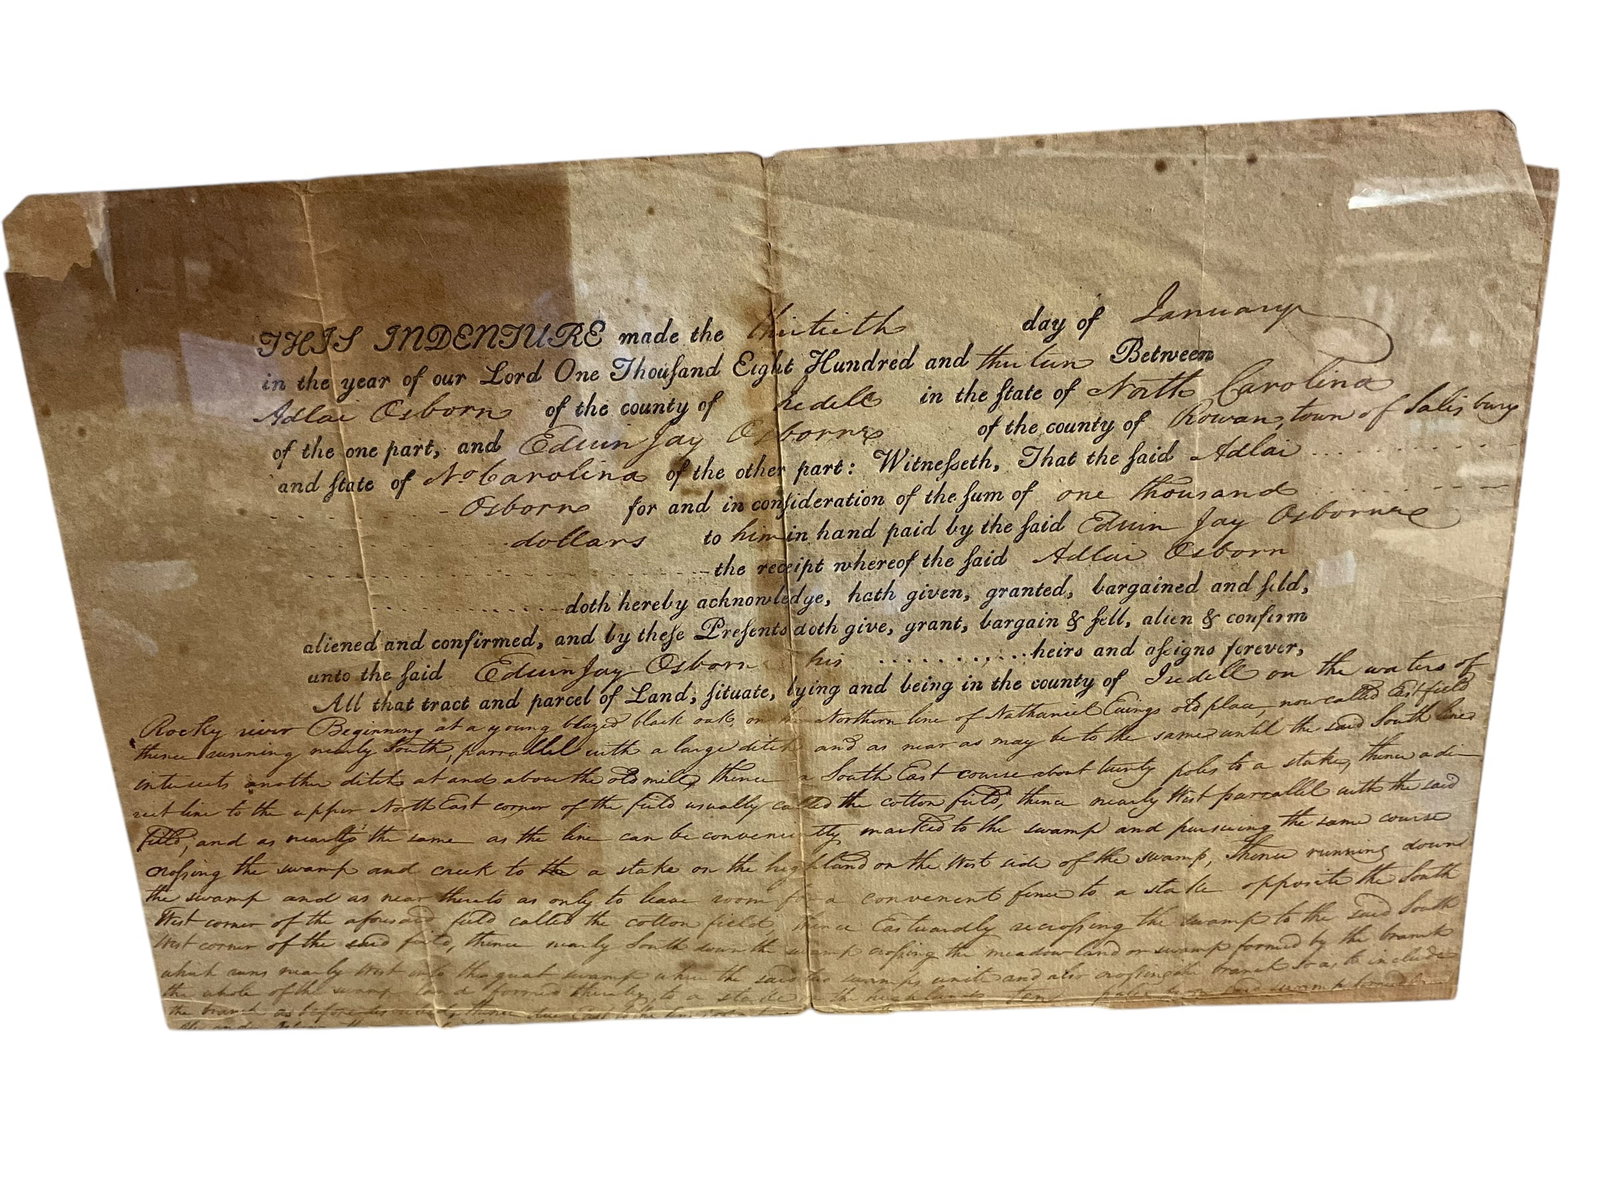 THIS INDENTURE made the thirtieth day of January
in the year of our Lord One Thouſand Eight Hundred and thirteen Between
Adlai Osborn of the county of Iredell in the ſtate of North Carolina
of the one part, and Edwin Jay Osborne of the county of Rowan, town of Salisbury
and ſtate of No Carolina of the other part: Witneſſeth, That the ſaid Adlai
Osborn for and in conſideration of the ſum of one thousand
dollars to him in hand paid by the ſaid Edwin Jay Osborne
the receipt whereof the ſaid Adlai Osborn
doth hereby acknowledge, hath given, granted, bargained and ſold,
aliened and confirmed, and by theſe Preſents doth give, grant, bargain & ſell, alien & confirm
unto the ſaid Edwin Jay Osborn his heirs and aſsigns forever,
All that tract and parcel of Land, ſituate, lying and being in the county of Iredell on the waters of
Rocky river Beginning at a young blazed black oak, on the Northern line of Nathaniel Ewings old place, now called Eastfield
thence running nearly South, parrallel with a large ditch and as near as may be to the same until the said South line
intersects another ditch at and above the old mill, thence a South East course about twenty poles to a stake, thence a di-
rect line to the upper North East corner of the field usually called the cotton field, thence nearly West parrallel with the said
field, and as nearly the same as the line can be conveniently marked to the swamp and pursuing the same course
croſsing the swamp and creek to a stake on the highland on the West side of the swamp, thence running down
the swamp and as near thereto as only to leave room for a convenient fence to a stake opposite the South
West corner of the aforesaid field called the cotton field, thence Eastwardly recroſsing the swamp to the said South
West corner of the said field, thence nearly South down the swamp croſsing the meadow land or swamp formed by the branch
which runs nearly West into the great swamp where the said two swamps unite and also croſsing the branch so as to include
the whole of the swamp land formed thereby, to a stake the highlands
the branch as before